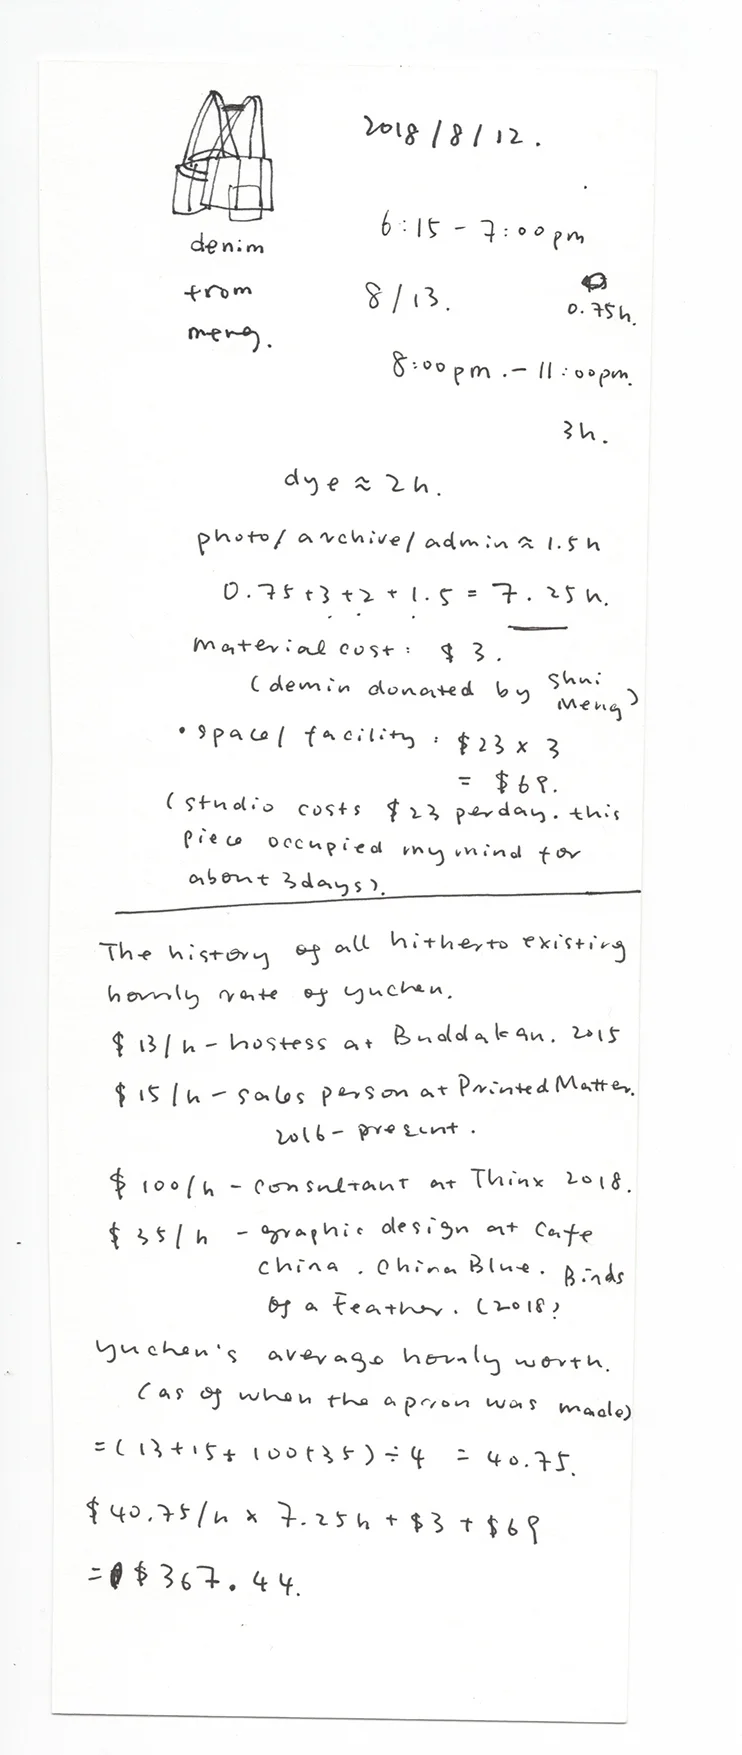 2018/8/12.
6:15 - 7:00pm
0.75h.
denim
from
meng.
8/13.
8:00pm. - 11:00pm.
3h.
dye ≈ 2h.
photo/archive/admin ≈ 1.5h
0.75+3+2+1.5 = 7.25h.
material cost: $3.
(demin donated by Shui
Meng)
• space/facility: $23 x 3
= $69.
(studio costs $23 perday. this
piece occupied my mind for
about 3days).
The history of all hitherto existing
hourly rate of yuchen.
$13/h - hostess at Buddakan. 2015
$15/h - sales person at Printed Matter.
2016 - present.
$100/h - consultant at Thinx 2018.
$35/h - graphic design at Cafe
China. China Blue. Birds
of a Feather. (2018)
yuchen's average hourly worth.
(as of when the apron was made)
=(13+15+100+35)÷4 = 40.75.
$40.75/h x 7.25h + $3 + $69
= $367.44.